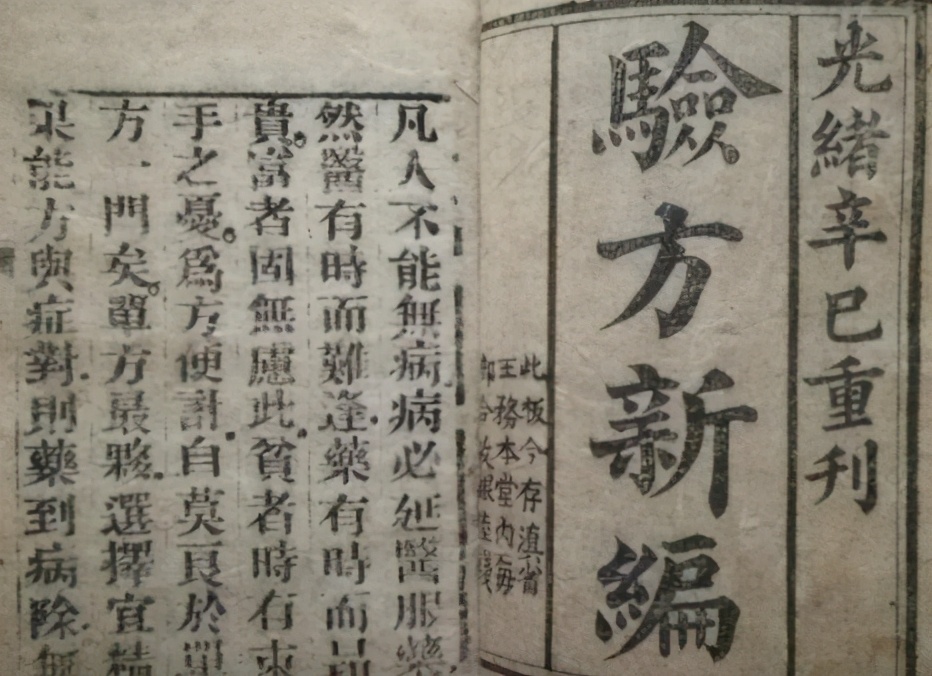 光緒辛巳重刊
驗方新編
此板今存滇省
王務本堂內每
銀
凡人不能無病病必延醫服藥
然醫有時而難逢。藥有時而昂
貴。富者固無慮此。貧者時有束
手之憂。爲方便計。自莫良於單
方一門矣。單方最夥。選擇宜精
果能方與症對。則藥到病除。無